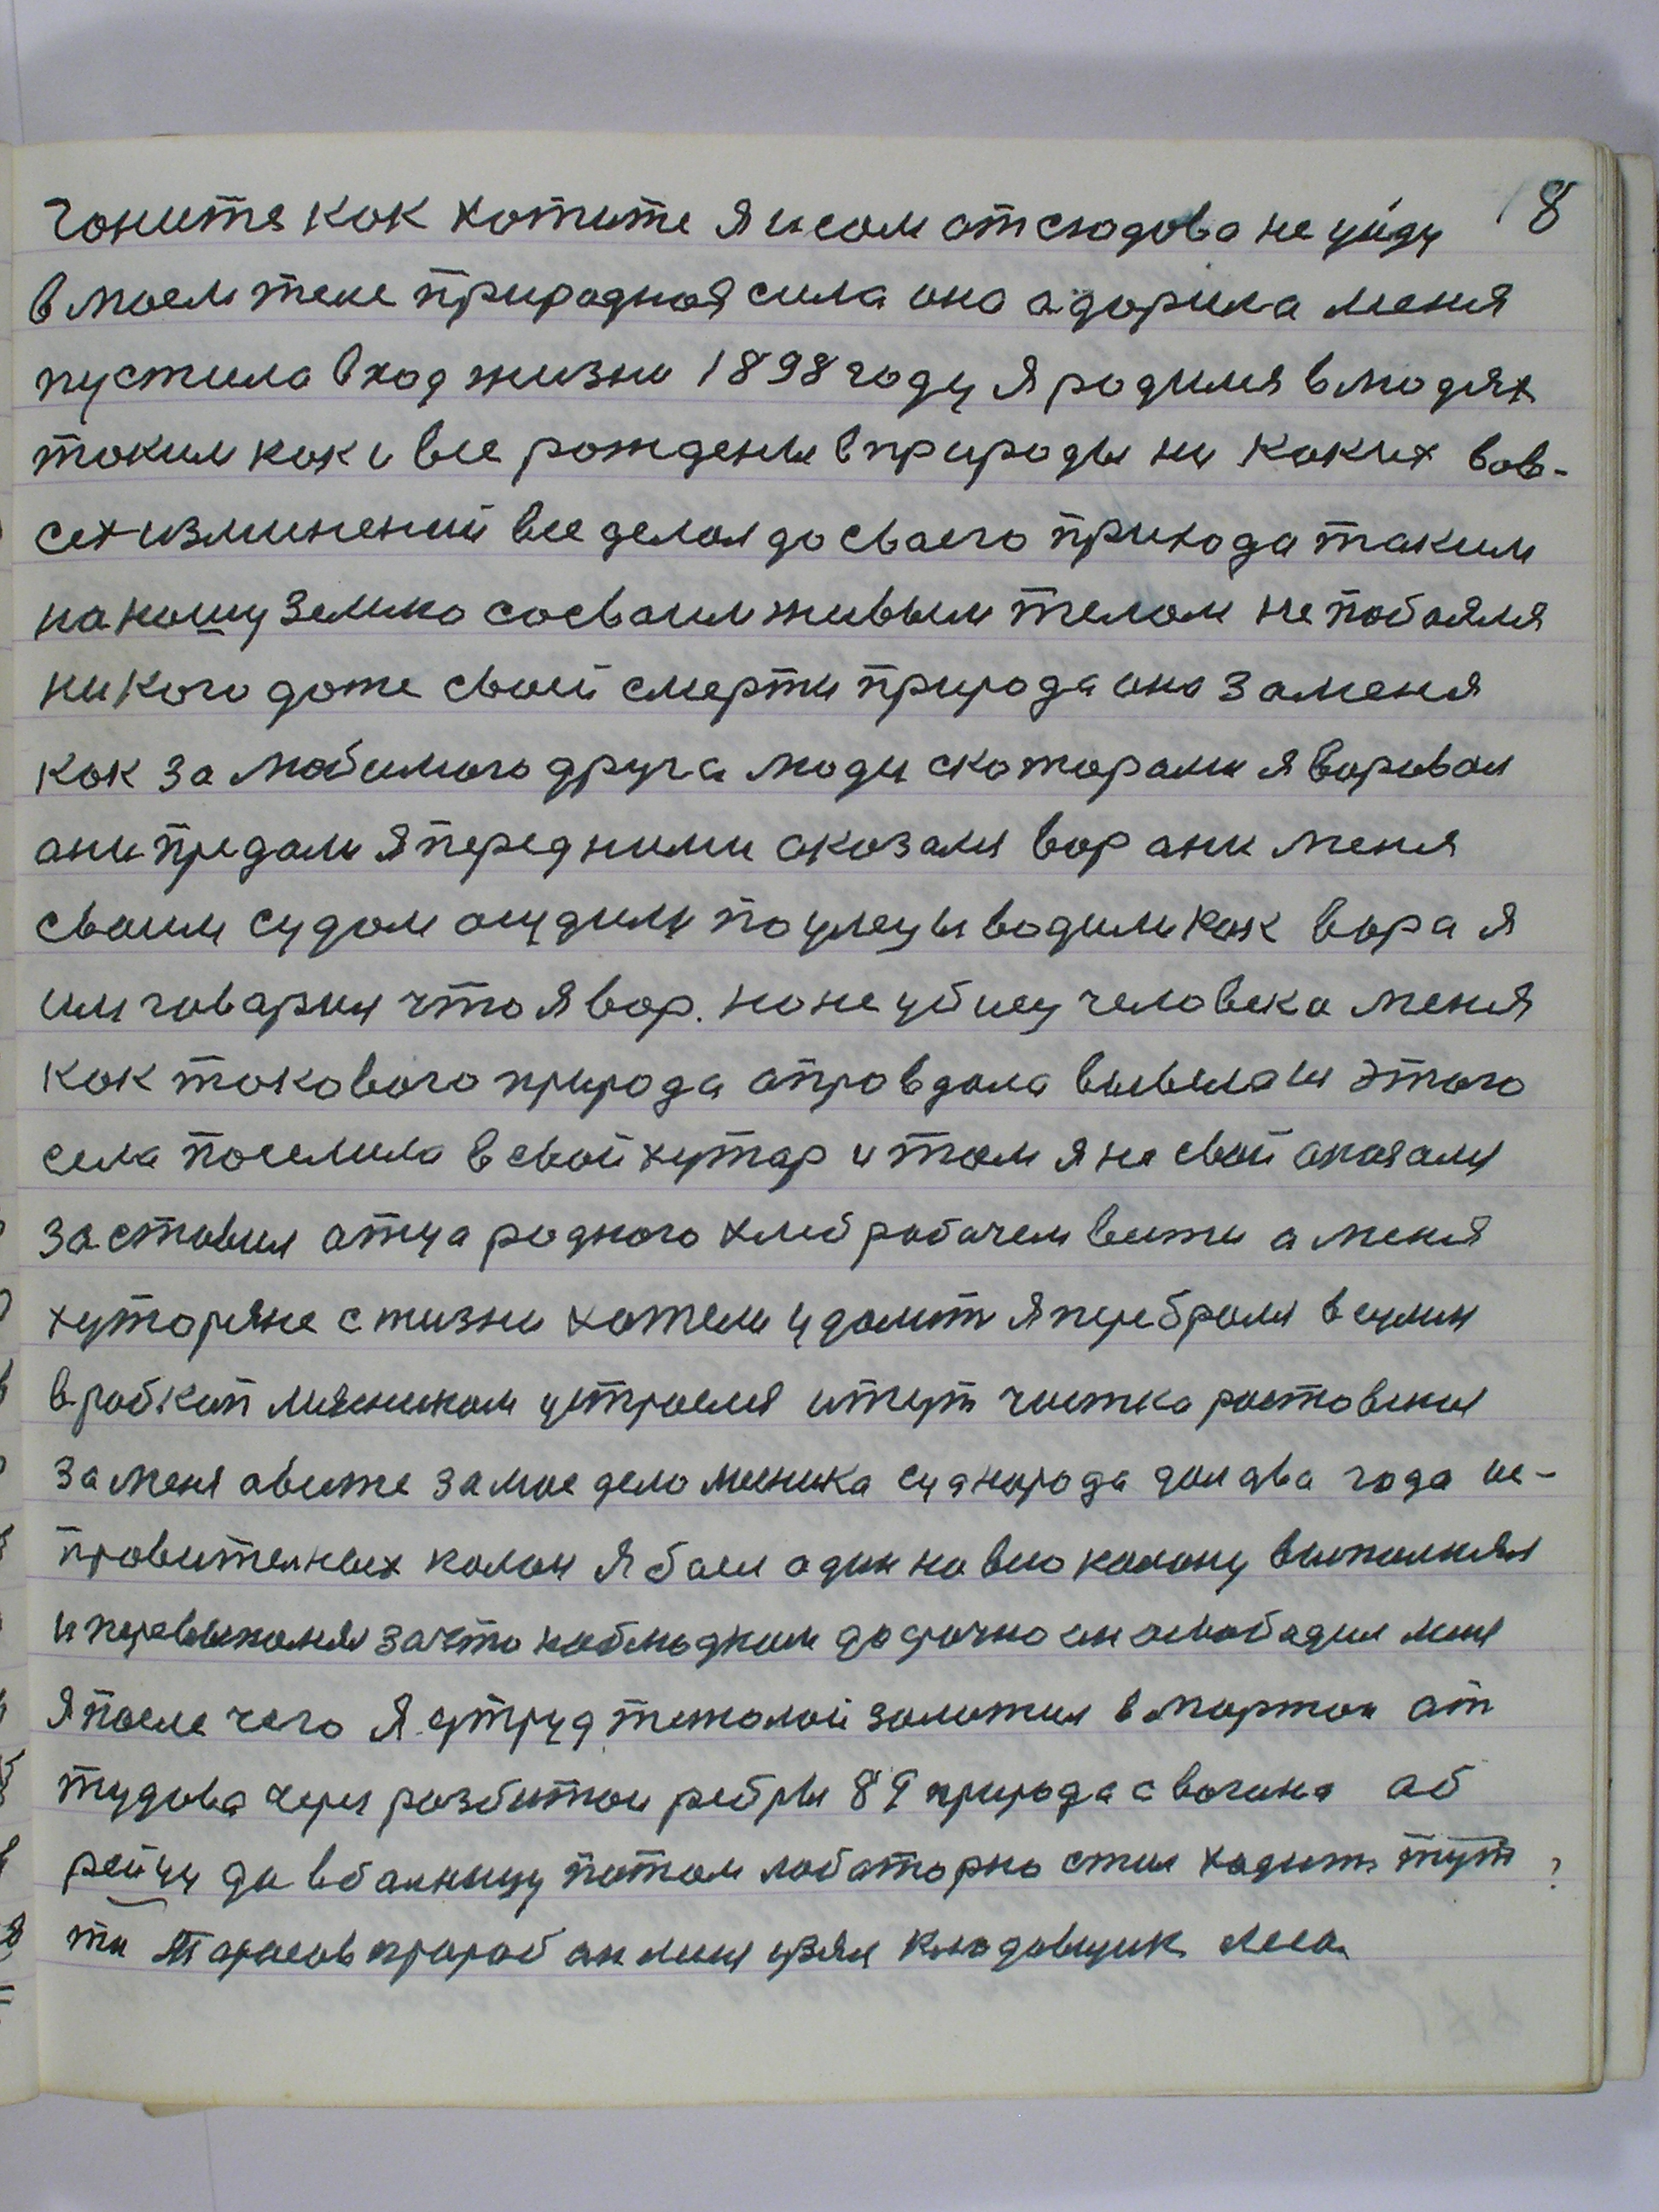 8
гоните как хотите я и сам отсюдова не уйду
в моем теле природная сила она адорила меня
пустила в ход жизни 1898 году я родиля в людях
таким как и все рождены в природы ни каких вов-
сех изминений все делоя до своего прихода таким
на нашу землю со своим живым телом не побояля
ни кого доже своей смерти природа она за меня
как за любимого друга люди с которами я воровал
ани предали я перед ними аказаля вор ани меня
своим судом асудили по улецы водили как вора я
им говарил что я вор. но не убиец человека меня
как токового природа аправдала вывела из этого
села поселила в свой хутар и там я не свой аказаля
заставил атца родного хлеб рабочем вести а меня
хуторяне с жизни хотели удалит я перебраля в сулин
в рабкоп мясником устроеля и тут чистка ростовская
за меня за мое дело месника суд народа дал два года ис-
правителных колон я был один на всю колону выполнял
и перевыполнял за что наблюдком досрочно он асвабадил меня
я после чего я. струд тежолой заложил в мартон ат
тудова через разбитои ребры 89 природа согнала аб
рейцу да в балницу патом лабаторно стал ходить тут ?
ти Тарасов прораб он меня узял кладовщик леса